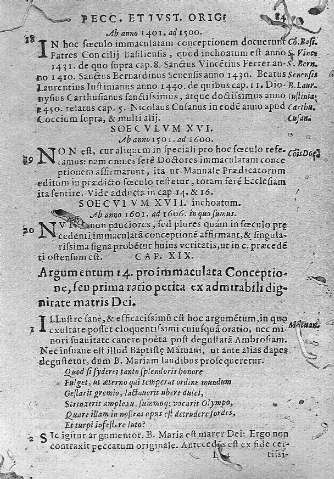 PECC. ET IVST. ORIG.
Ab anno 1401. ad 1500.
18 IN hoc sæculo immaculatam conceptionem docuerunt
Patres Concilij Basiliensis, cuius inchoatum est anno
1431. de quo supra cap. 8. Sanctus Vincentius Ferrer an-
no 1410. Sanctus Bernardinus Senensis anno 1430. Beatus
Laurentius Iustinianus anno 1440. de quibus cap. 11. Dio-
nysius Carthusianus sanctissimus, atque doctissimus anno
1450. relatus cap. 5. Nicolaus Cusanus in eodē anno apud
Coccium supra, & multi alij.
SOECVLVM XVI.
Ab anno 1501. ad 1600.
NON est, cur aliquem in speciali pro hoc sæculo refe-
ramus: nam cuncti ferè Doctores immaculatam conce-
ptionem affirmarunt, ita ut Mannale Prædicatorum
editum in prædicto sæculo testetur, totam ferè Ecclesiam
ita sentire. Vide adducta in cap 14. & 16.
SOECVLVM XVII. inchoatum.
Ab anno 1601. ad 1606. in quo sumus.
20 non pauciores, sed plures quàm in sæculo præ-
cedenti, immaculatā conceptionē affirmant, & singula-
rissima signa probētur huius veritatis, ut in c. præcedē
ti ostensum est. CAP. XIX.
Argumentum 14. pro immaculata Conceptio-
ne, seu prima ratio petita ex admirabili dig-
nitate matris Dei.
ILlustre sanè, & efficacissimū est hoc argumētum, in quo
exultare posset eloquentissimi cuiusquā oratio, nec mi-
nori suavitate canere poëta post degustatā Ambrosiam.
Nec insuave est illud Baptistę Mātuani, ut ante alias dapes
degustetur, dum B. Mariam laudibus prosequeretur.
Quod si sydereo tantū splendoris honore
Fulget, ut æterno qui temperat ordine mundum
Gestarit gremio, lactaverit ubere dulci,
Strinxerit amplexu, suumq; vocarit Olympo,
Quare illam in nostros opus est detrudere sordes,
Et turpi infestare luto?
2 Sit igitur argumentor. B. Maria est mater Dei: Ergo non
contraxit peccatum originale. Antecedēs est ex fide cer-